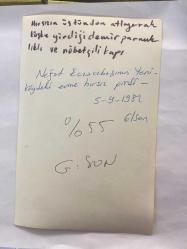 Hırsızın üstünden atlayarak
köşke girdiği demir parmak-
lıklı ve nöbetçili kapı
Nejat Eczacıbaşının Yeni-
köydeki evine hırsız girdi —
5-9-1981
G/Son
% 55
G: SON